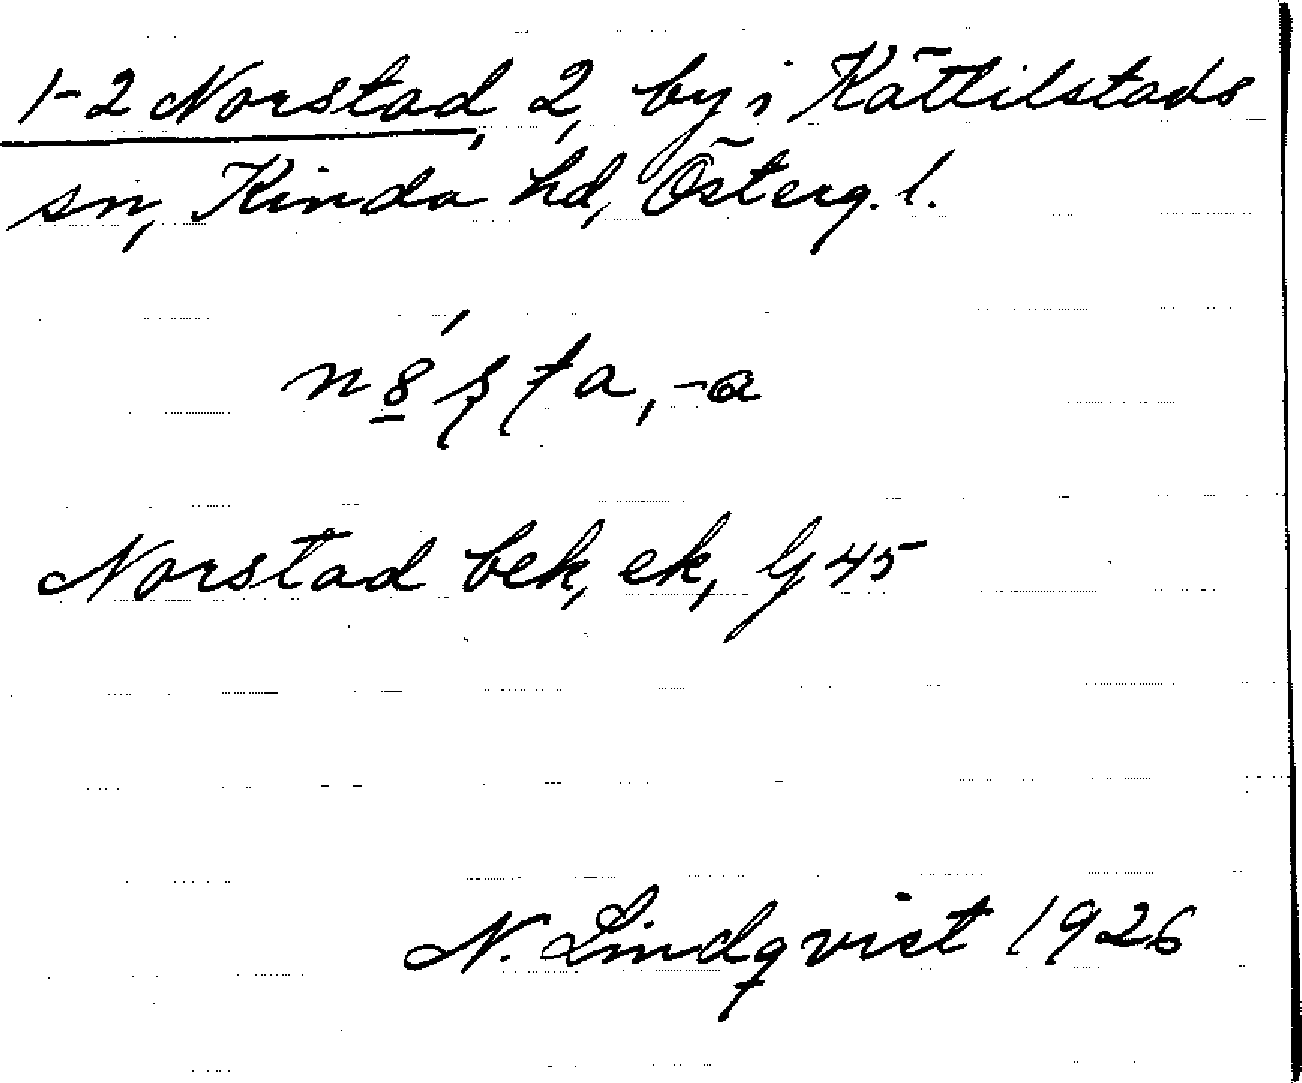 1-2 Norstad, 2, by i Kättilstads
sn, Kinda hd, Österg. l.
Norstad bek, ek, G 45
N. Lindqvist 1926